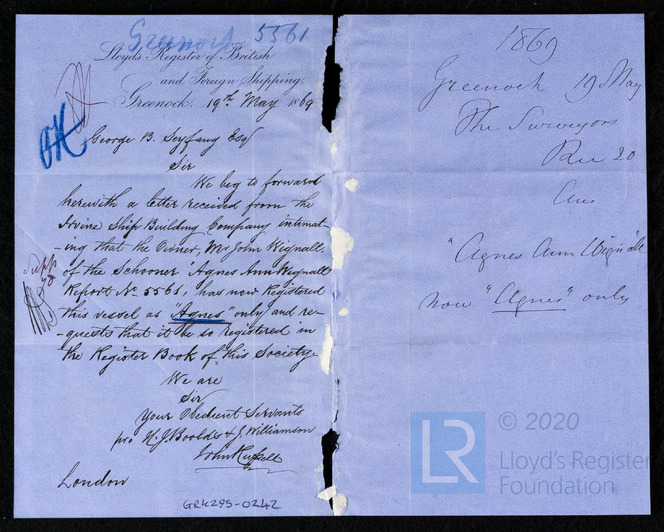 Greenock 5561
Lloyd's Register of British
and Foreign Shipping.
Greenock. 19th May 1869
OK
George B. Seyfang Esqr
Sir
We beg to forward
herewith a letter received from the
Irvine Ship Building Company intimat-
-ing that the Owner, Mr John Wignall,
of the Schooner "Agnes Ann Wignall"
Report No 5561, has now Registered
this vessel as "Agnes" only and re-
-quests that it be so registered in
the Register Book of this Society.
We are
Sir
Your Obedient Servants
pro H.J. Boolds & J. Williamson
John Russell
London
Supp
GRK295-0242
1869
Greenock 19 May
The Surveyors
Rec 20
Ans
"Agnes Ann Wignall"
now "Agnes" only
LR
© 2020
Lloyd's Register
Foundation